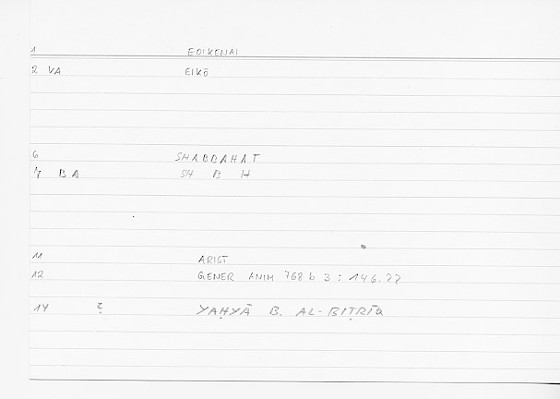 1 EOIKENAI
2 VA EIKŌ
6 SHABBAHAT
7 BA SH B H
11 ARIST
12 GENER ANIM 768 b 3 : 146.22
14 YAḤYĀ B. AL-BIṬRĪQ